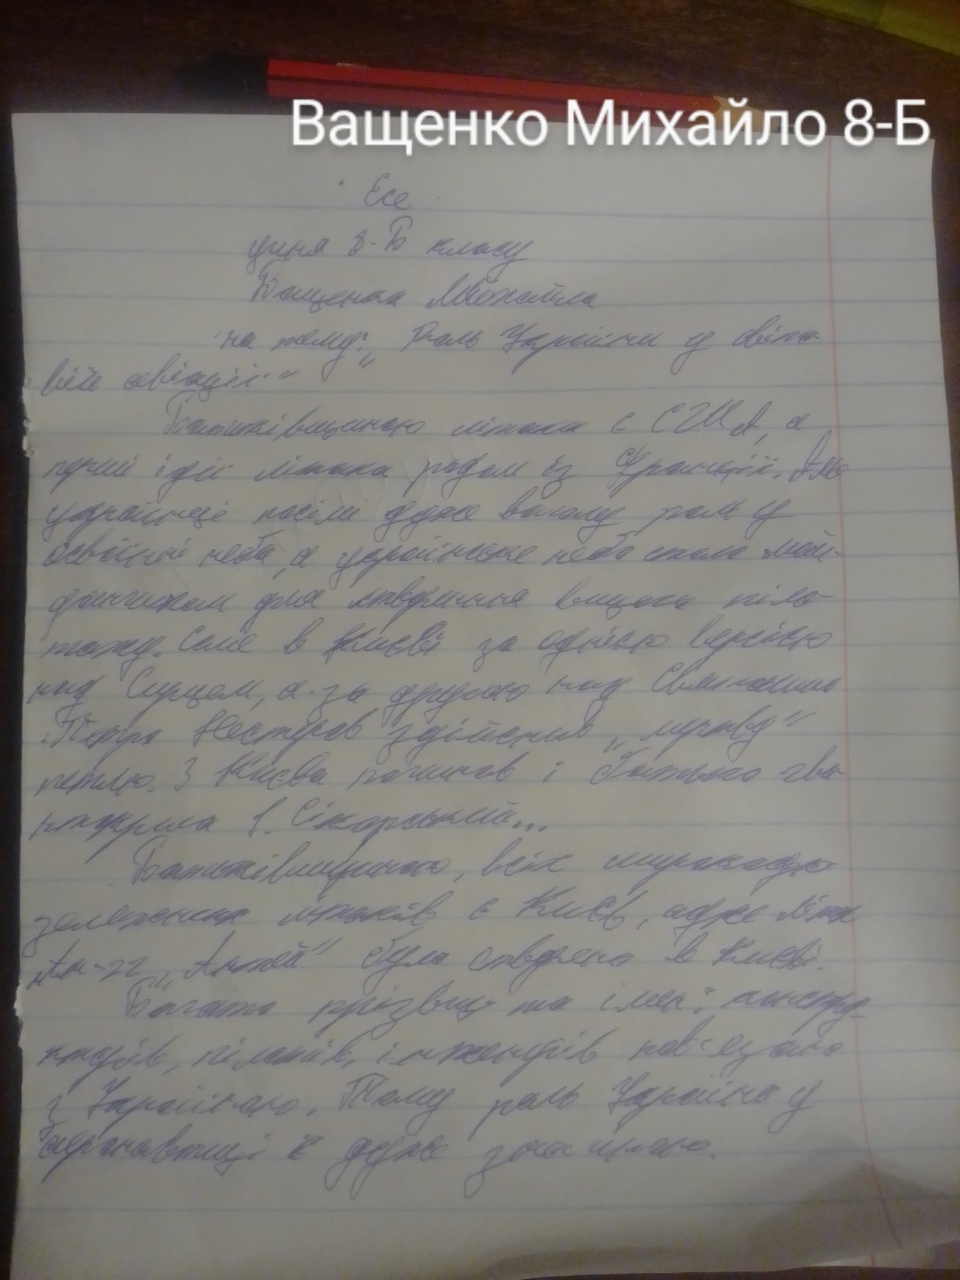 Ващенко Михайло 8-Б
Есе
учня 8-Б класу
Ващенка Михайла
на тему: „Роль України у світо-
вій авіації."
Батьківщиною літака є США, а
перші ідеї літака родом із Франції. Але
українці посіли дуже вагому роль у
освоїнні неба, а українське небо стало май-
данчиком для створення вищого піло-
тажу. Саме в Києві за однією версією
над Сирцем, а за другою над Святошино
Петро Нестеров здійснив „мертву"
петлю. З Києва починав і батько
І. Сікорський...
Батьківщиною, всіх широкофю-
зеляжних літаків є Київ, адже літак
Ан-22 „Антей" було створено в Києві.
Багато прізвищ та імен: констру-
кторів, пілотів, інженерів пов'язано
з Україною. Тому роль України у
є дуже значною.